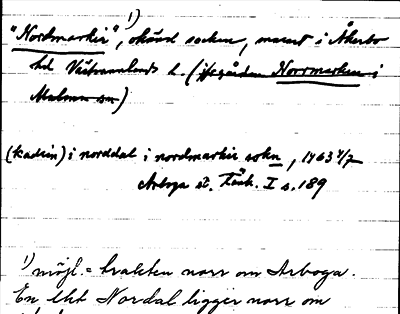 "Nordmarkir" 1), okänd socken, annat i Åkerbo
hd Västmanlands l. (jfr gården Norrmarken i
Malma sn)
(kadrin) i norddal i nordmarkir sokn, 1463 4/7
Arboga st. Tänk. I s. 189
1) möjl. = trakten norr om Arboga.
En ekt Nordal ligger norr om